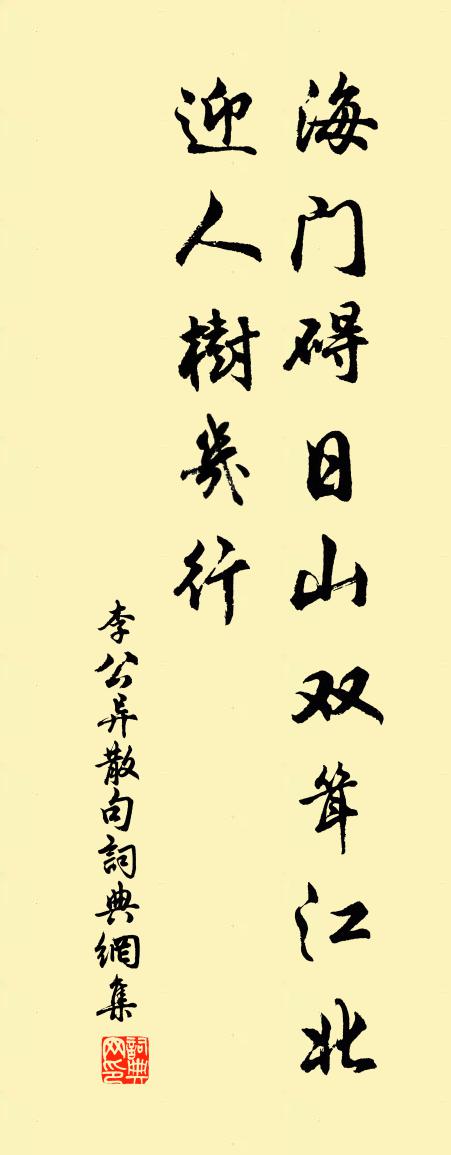 海门碍日山双耸江北
迎人樹幾行
李公异散句詞典網集
詞典网印